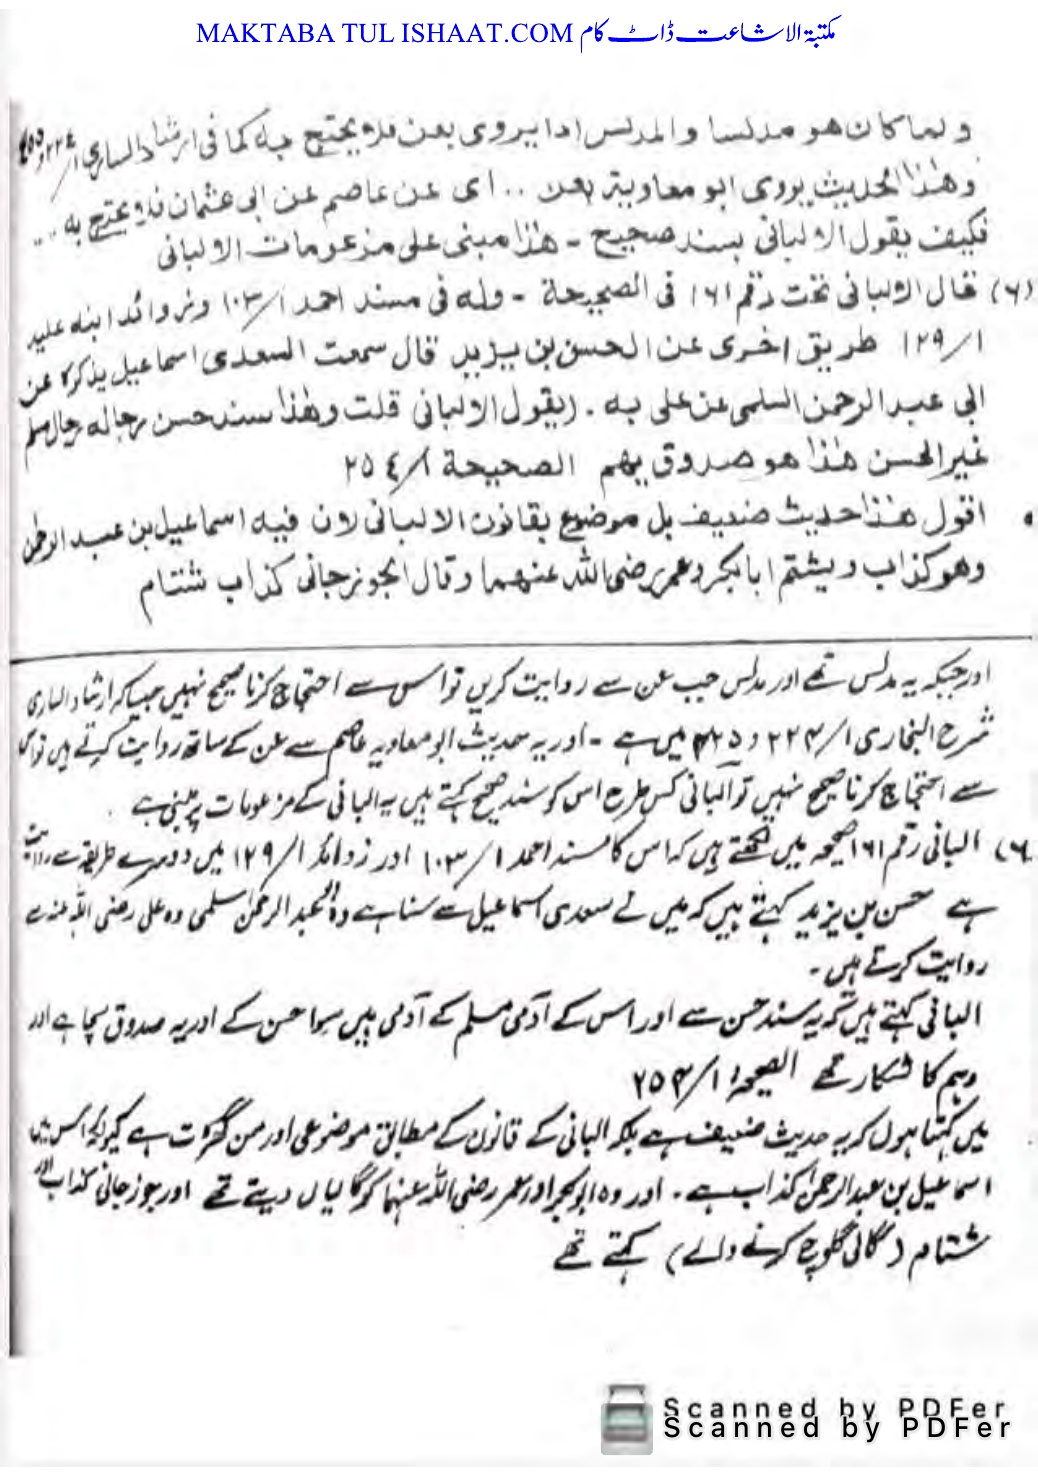 MAKTABA TUL ISHAAT.COM مکتبۃ الاشاعت ڈاٹ کام
ولما كان هو مدلسا والمدلس اذا يروى بعن فلا يحتج به كما فى ارشاد السارى
وهذا الحديث يروى ابو معاوية بعن .. اى عن عاصم عن ابى عثمان فلا يحتج به ..
فكيف يقول الالبانى بسند صحيح - هذا مبنى على مزعومات الالبانى
(٦) قال الالبانى تحت رقم ١٦١ فى الصحيحة - وله فى مسند احمد ١٠٣/١ وزوائد ابنه عليه
١٢٩/١ طريق اخرى عن الحسن بن يزيد قال سمعت السعدى اسماعيل يذكره عن
ابى عبد الرحمن السلمى عن على به . (يقول الالبانى قلت وهذا سند حسن رجاله رجال مسلم
غير الحسن هذا هو صدوق يهم الصحيحة ٢٥٤/١
اقول هذا حديث ضعيف بل موضوع بقانون الالبانى لان فيه اسماعيل بن عبد الرحمن
وهو كذاب ويشتم ابا بكر وعمر رضى الله عنهما وقال الجوزجانى كذاب شتام
اور جبکہ یہ مدلس تھے اور مدلس جب عن سے روایت کریں تو اس سے احتجاج کرنا صحیح نہیں جیسا کہ ارشاد الساری
شرح البخاری ۱/۲۲۴ و ۴۵۵ میں ہے - اور یہ حدیث ابو معاویہ عاصم سے عن کے ساتھ روایت کرتے ہیں تو اس
سے احتجاج کرنا صحیح نہیں تو البانی کس طرح اس کو سند صحیح کہتے ہیں یہ البانی کے مزعومات پر مبنی ہے .
(۶) البانی رقم ۱۶۱ صحیحہ میں لکھتے ہیں کہ اس کا مسند احمد ۱/۱۰۳ اور زوائد ۱/۱۲۹ میں دوسرے طریقہ سے روایت
ہے حسن بن یزید کہتے ہیں کہ میں نے سعدی اسماعیل سے سنا ہے وہ ابی عبد الرحمن سلمی وہ علی رضی اللہ عنہ سے
روایت کرتے ہیں۔
البانی کہتے ہیں کہ یہ سند حسن ہے اور اس کے آدمی مسلم کے آدمی ہیں سوا حسن کے اور یہ صدوق سچا ہے اور
وہم کا شکار تھے الصحیحۃ ۱/۲۵۴
میں کہتا ہوں کہ یہ حدیث ضعیف ہے بلکہ البانی کے قانون کے مطابق موضوعی اور من گھڑت ہے کیونکہ اس میں
اسماعیل بن عبدالرحمن کذاب ہے۔ اور وہ ابوبکر اور عمر رضی اللہ عنہما کو گالیاں دیتے تھے اور جوزجانی کذاب اور
شتام (گالی گلوچ کرنے والے) کہتے تھے
Scanned by PDFer
Scanned by PDFer